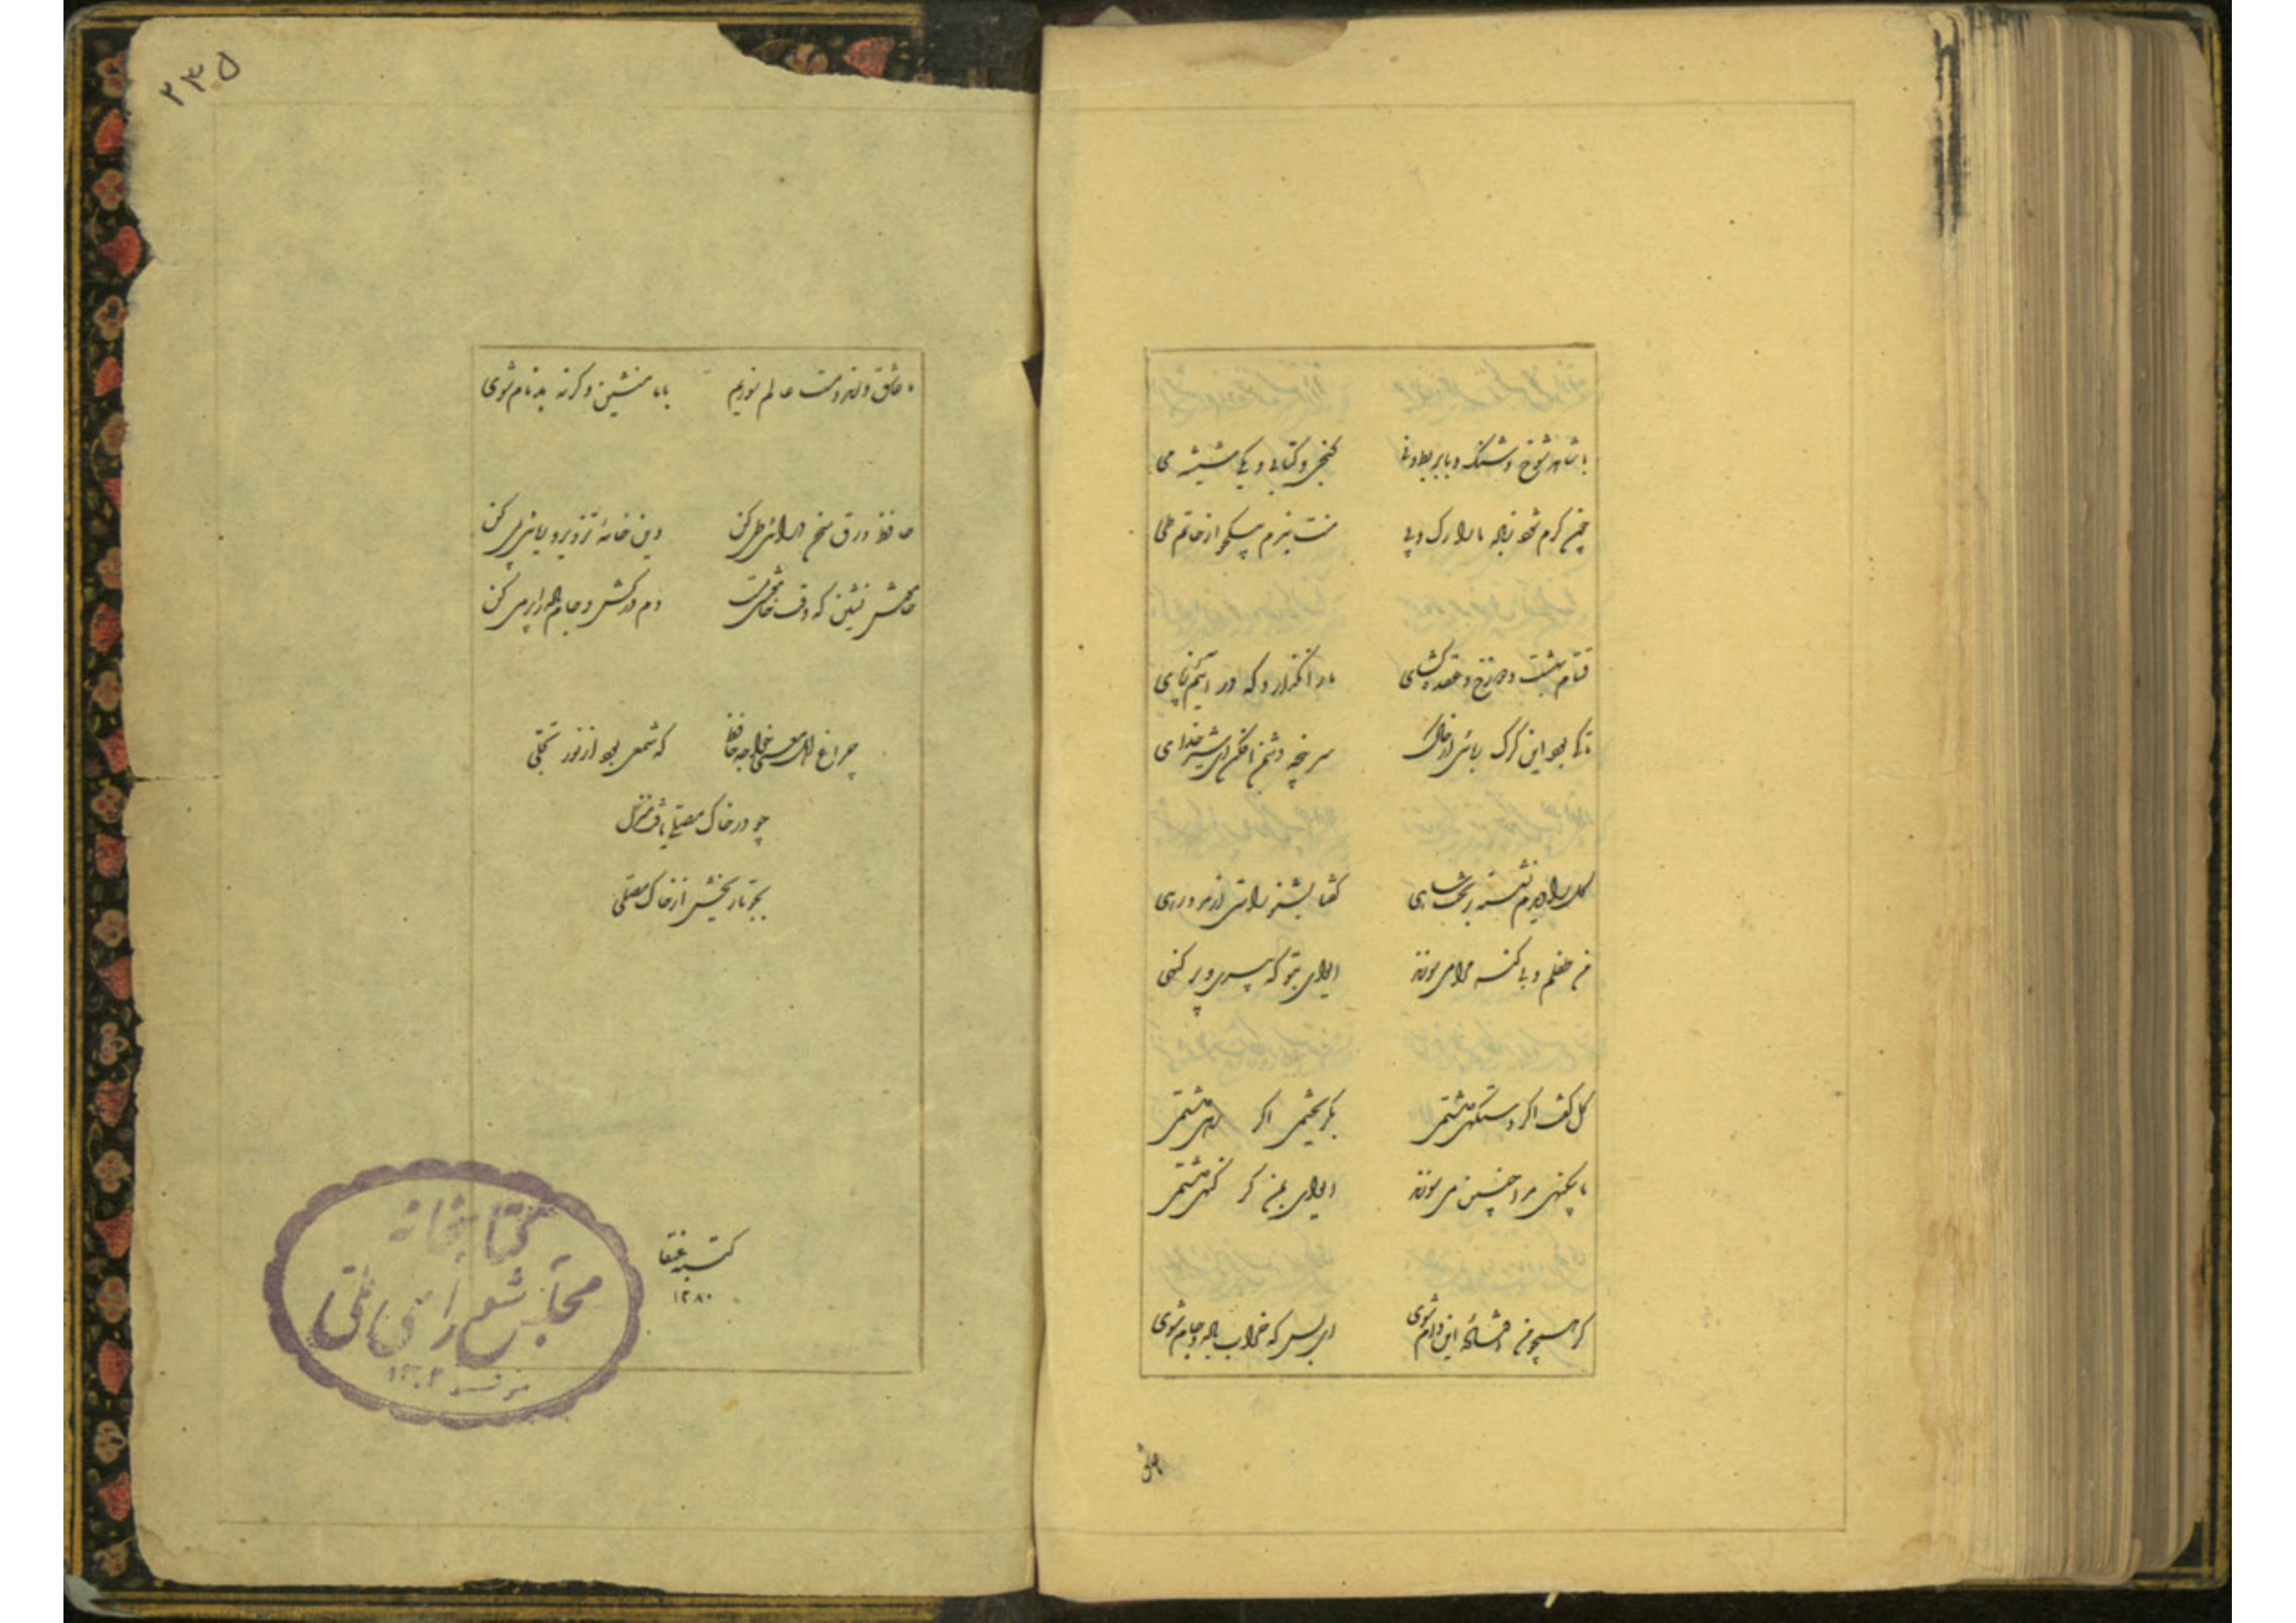 با شاهد شوخ و شنگ و با بربط و نی کنجی و کتابی و یک شیشه می
چون گرم شود باده ما را رگ و پی منت نبرم بیکجو از حاتم طی
قسام بهشت و دوزخ و عقده گشای ما را نگذارد که در آئیم ز پای
تا کی بود این گرگ ربائی سر پنجه دشمن افکن ای شیر خدای
گل را دیدم نشسته بر تخت شاهی گفتا بشنو راستی از
من طفلم و بی گنه مرا می سوزند ای وای بتو که پیری و پر گنهی
گل گفت اگر دستگهی داشتمی بگریختمی اگر رهی داشتمی
با بیگنهی مرا چنین می سوزند ای وای بمن گر گنهی داشتمی
گر همچو من افتاده این دام شوی ای بس که خراب باده و جام شوی
ما عاشق و رند و مست عالم سوزیم با ما منشین وگرنه بدنام شوی
۲۳۵
حافظ ورق سخن سرائی طی کن وین خامه تزویر و ریائی پی کن
خامش بنشین که وقت خاموشی است دم درکش و جام باده را پر می کن
چراغ اهل معنی خواجه حافظ که شمعی بود از نور تجلی
چو در خاک مصلی یافت منزل
بجو تاریخش از خاک مصلی
کتبه عنقا
۱۲۸۰
کتابخانه
مجلس شورای ملی
۱۳۰۲